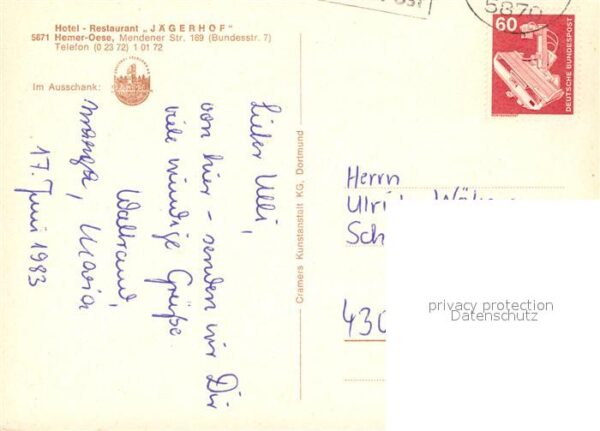 Hotel - Restaurant „JÄGERHOF"
5871 Hemer-Oese, Mendener Str. 169 (Bundesstr. 7)
Telefon (0 23 72) 1 01 72
Im Ausschank:
5870
60
DEUTSCHE BUNDESPOST
Lieber Ulli,
von hier - senden wir Dir
viele windige Grüße.
Waltraud,
Marga, Maria
17. Juni 1983
Cramers Kunstanstalt KG, Dortmund
Herrn
430
privacy protection
Datenschutz